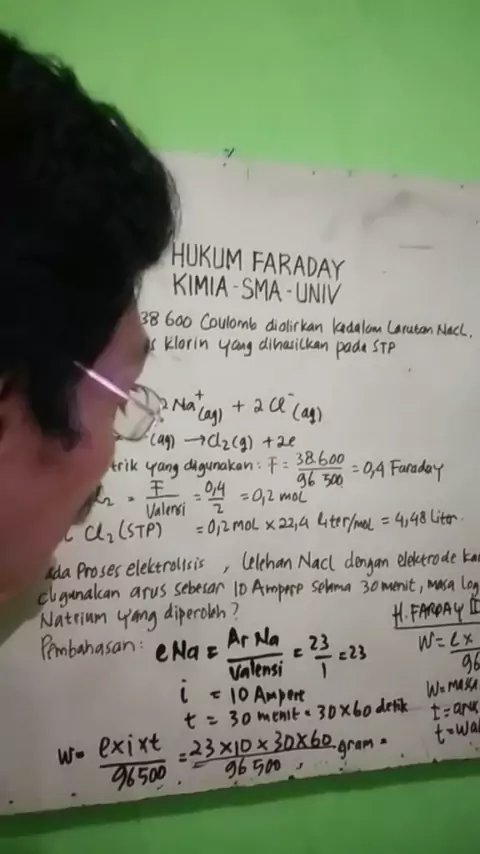 HUKUM FARADAY
KIMIA-SMA-UNIV
38 600 Coulomb dialirkan kedalam Larutan NaCl.
s klorin yang dihasilkan pada STP
2 Na⁺(aq) + 2 Cl⁻(aq)
(aq) → Cl₂(g) + 2e
trik yang digunakan: F = 38.600 / 96 500 = 0,4 Faraday
l₂ = F / Valensi = 0,4 / 2 = 0,2 mol
Cl₂ (STP) = 0,2 mol × 22,4 liter/mol = 4,48 Liter.
ada Proses elektrolisis , Lelehan NaCl dengan elektrode ka
digunakan arus sebesar 10 Ampere selama 30 menit, masa log
Natrium yang diperoleh?
H. FARADAY II
Pembahasan: eNa = Ar Na / Valensi = 23 / 1 = 23
i = 10 Ampere
t = 30 menit = 30×60 detik
W = e×i×t / 96500 = 23×10×30×60 / 96 500 gram =
W = e×
96
W = masa
I = arus
t = wa